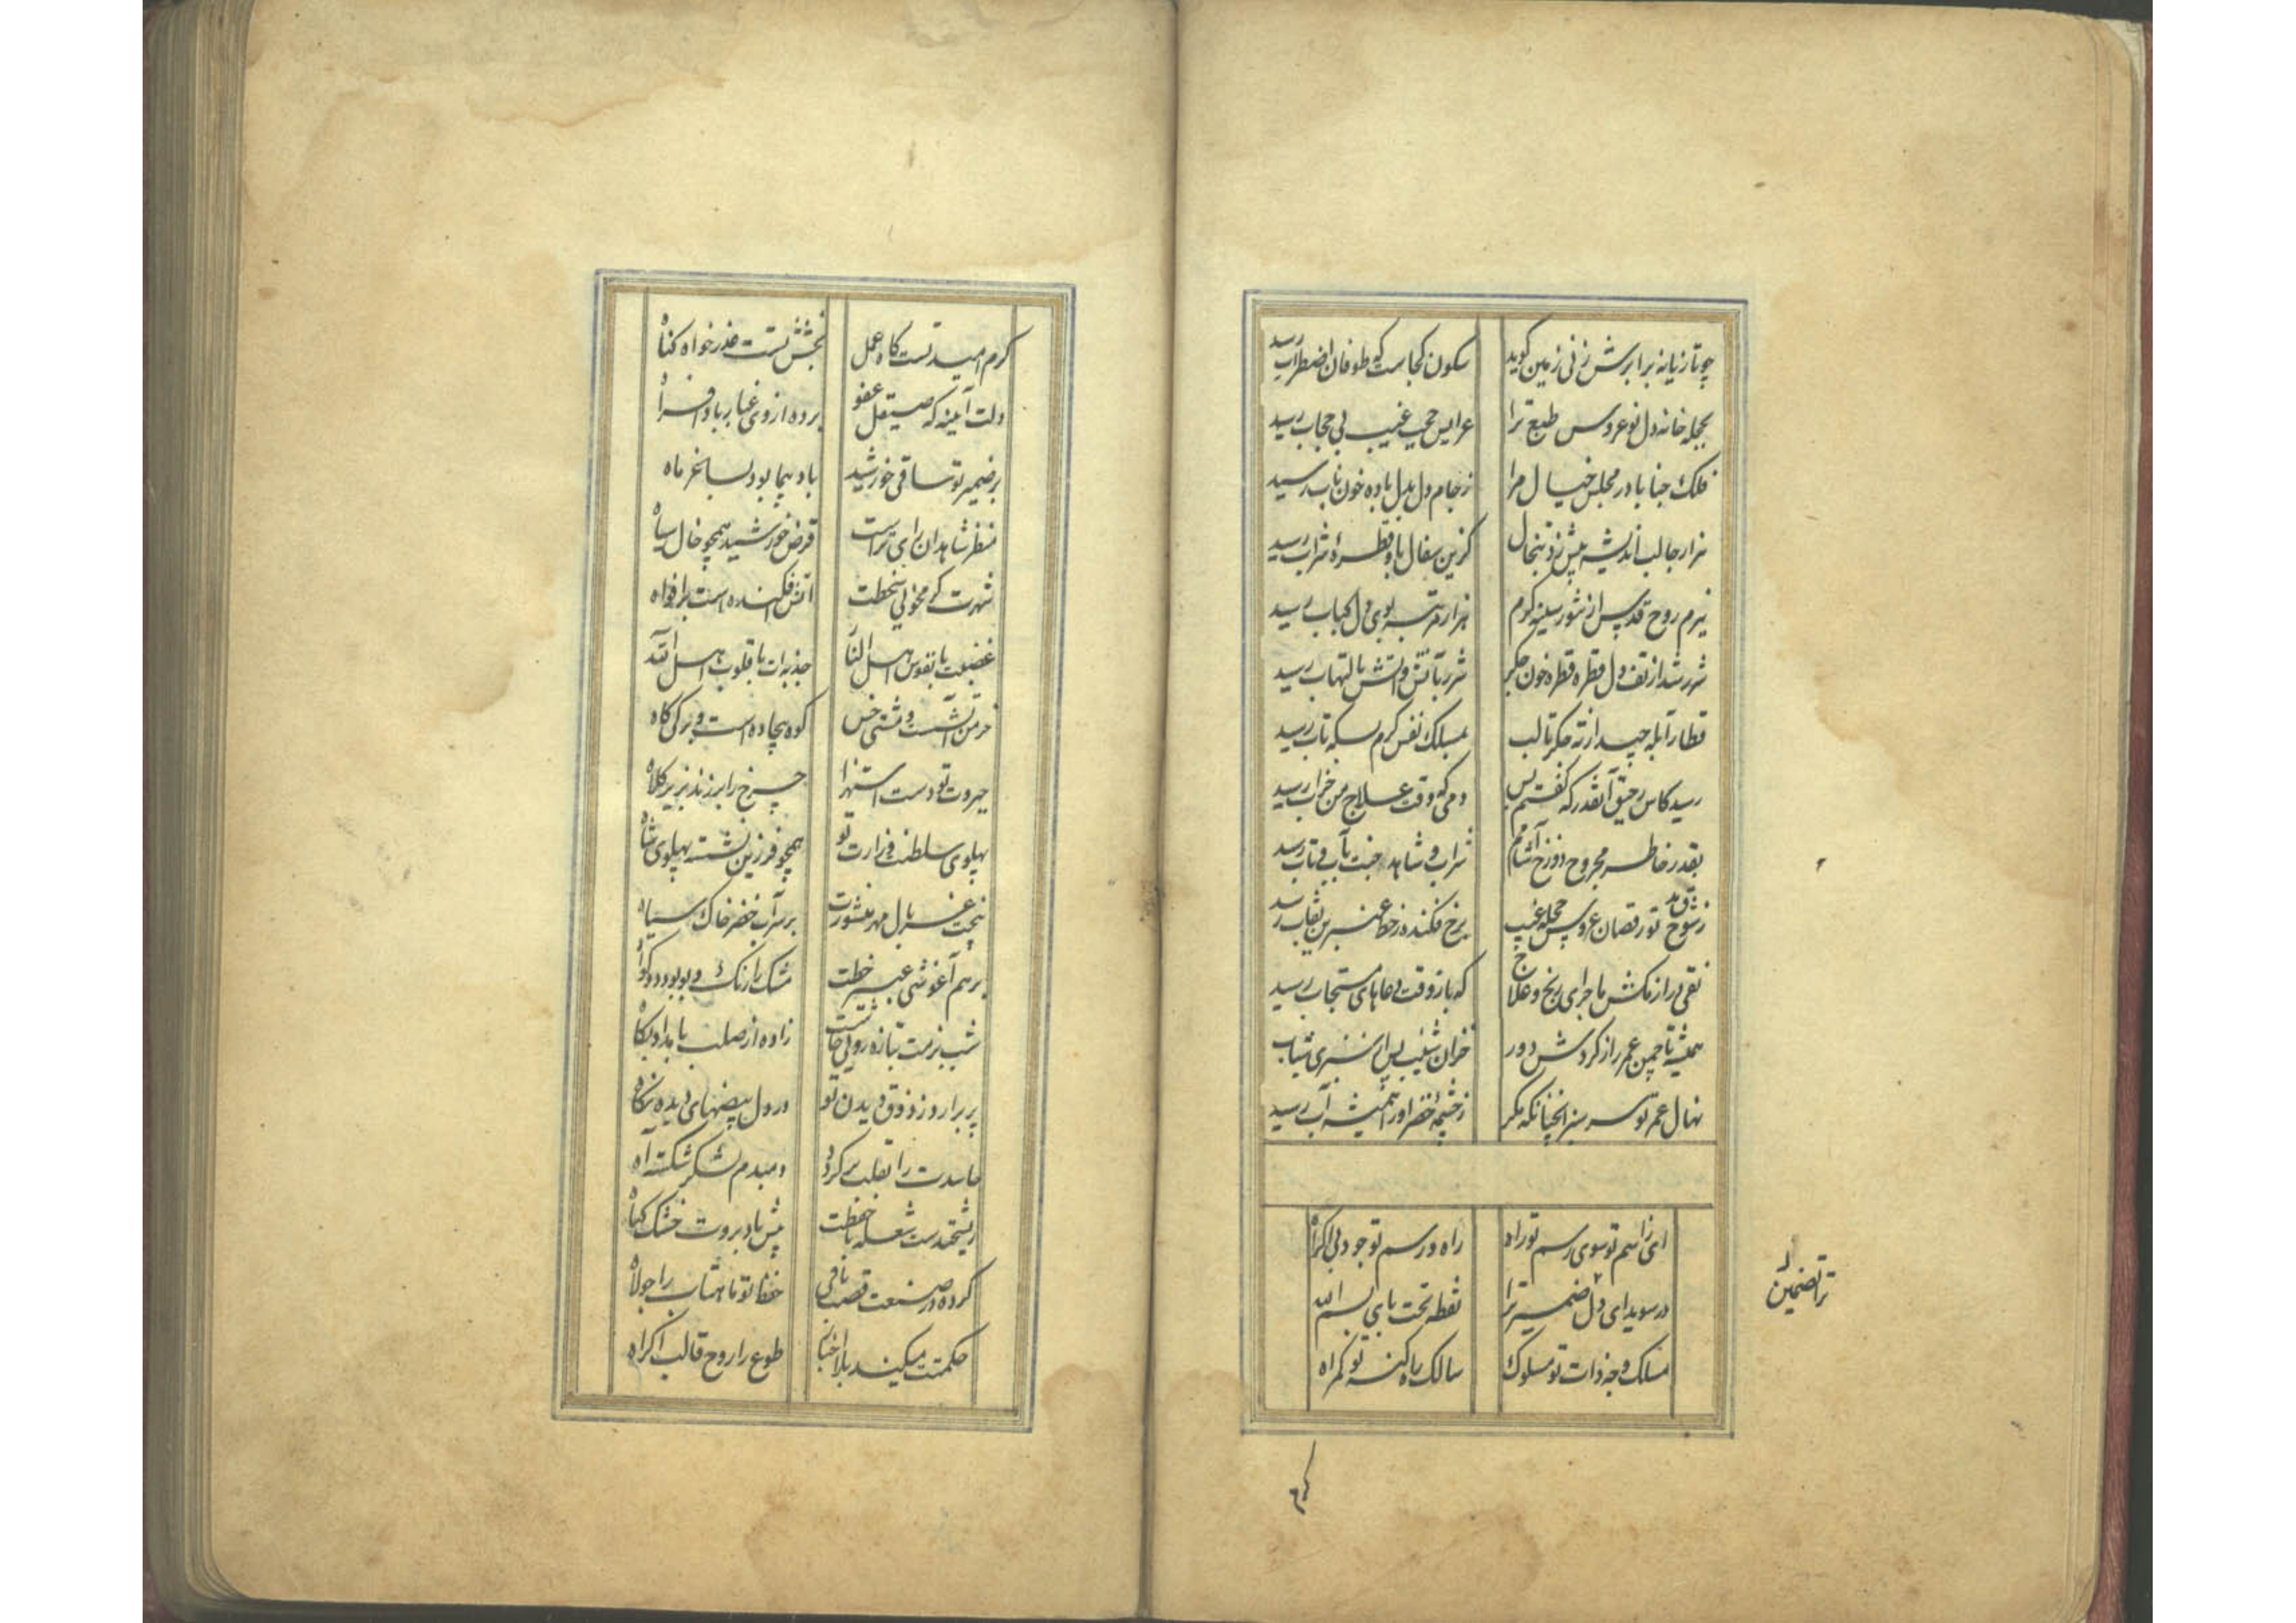 چو تازیانه برابرش زنی زمین کوید سکون کجاست که طوفان اضطراب رسید
بحجله خانه دل نوعروس طبع ترا عرایس حجب غیب بی حجاب رسید
فلک جنابا در مجلس خیال مرا ز جام دل بدل باده خون ناب رسید
هزار جا لب اندیشه پیش زد تبخال کزین سفال باو قطرهٔ شراب رسید
ببزم روح قدس از شور سینهٔ کرم هزار مرتبه بوی دل کباب رسید
شرر شد از تف دل قطره قطره خون جکر شرر بآتش و آتش بالتهاب رسید
قطار آبله چید از ته جکر تا لب بمسلک نفس کرم بسکه تاب رسید
رسید کاس رحیق آنقدر که کفتم بس دمی که وقت علاج من خراب رسید
بقدر خاطر مجروح دوزخ آشامم شراب و شاهد جنت مآب و تاب رسید
ز شوق مدح تو رقصان عروس حجله غیب برخ فکنده ز خط عنبرین نقاب رسید
نقی دراز مکش ماجرای رنج و علاج که باز وقت دعاهای مستجاب رسید
همیشه تا چمن عمر را ز کردش دور خزان شیب پس از سبزی شباب رسید
نهال عمر تو سرسبز آنچنانکه مکر ز چشمهٔ خضر او را همیشه آب رسید
ای ز اسم تو سوی رسم تو راه راه و رسم تو جود بی اکراه
در سویدای دل ضمیر ترا نقطه تحت بای بسم الله
مسلک وجه ذات تو مسلوک سالک راه کنه تو کمراه
ترا تضمین
کرم
کرم امیدتست کاه عمل بخشش تست عذرخواه کناه
دلت آیینه که صیقل عفو برده از وی غبار بادافراه
بر ضمیر تو ساقی خورشید باد پیما بود بساغر ماه
منظر شاهدان رای تراست قرص خورشید همچو خال سیاه
شهرت آتش افکنده است بر افواه
غضبت با نفوس اهل النار جذبه‌ات با قلوب اهل الله
خرمن آتشست و مشتی خس کوه بیجاده است و برک کاه
جبروت تو دست استهزا چرخ را بر زند بزیر کلاه
پهلوی سلطنت وزارت تو همچو فرزین نشسته پهلوی شاه
بر سر آب خضر خاک سیاه
بر هم آغوشی عبیر خطت مشک را رنک و بو بود دو کواه
شب بزمت بتازه رویی زاده از صلب بامداد پکاه
پر برآرد ز ذوق دیدن تو در دل بیضهای دیده نکاه
حاسدت را بقلب بر کردد دمبدم لشکر شکسته آه
ریشخندست شعله با حفظت پیش باد بروت خشک کیاه
کرده در صنعت قصب بافی حفظ تو ماهتاب را جولاه
حکمتت میکند بلا اجبار طوع را روح قالب اکراه